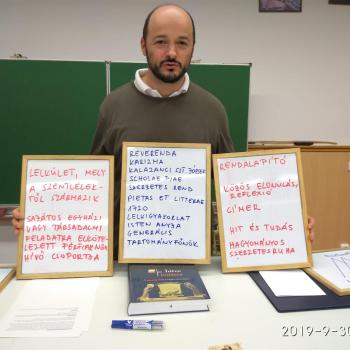 LELKÜLET, MELY
A SZENTLÉLEK-
TŐL SZÁRMAZIK
SAJÁTOS EGYHÁZI
VAGY TÁRSADALMI
FELADATRA ELKÖTE-
LEZETT FÉRFIAK
HÍVŐ CSOPORTJA
REVERENDA
KARIZMA
KALAZANCI SZT. JÓZSEF
SCHOLAE PIAE
SZERZETES REND
PIETAS ET LITTERAE
1720
LELKIGYAKORLAT
ISTEN ANYJA
GENERÁLIS
TARTOMÁNYFŐNÖK
RENDALAPÍTÓ
KÖZÖS
REFLEXIÓ
CÍMER
HIT ÉS TUDÁS
HAGYOMÁNYOS
SZERZETESRUHA
2019-9-30